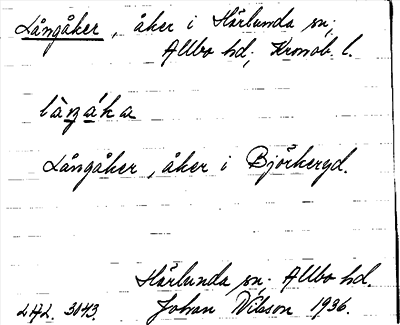 Långåker, åker i Härlunda sn;
Allbo hd; Kronob. l.
làŋáka
Långåker, åker i Björkeryd.
Härlunda sn. Allbo hd.
LAL. 3043. Johan Nilsson 1936.